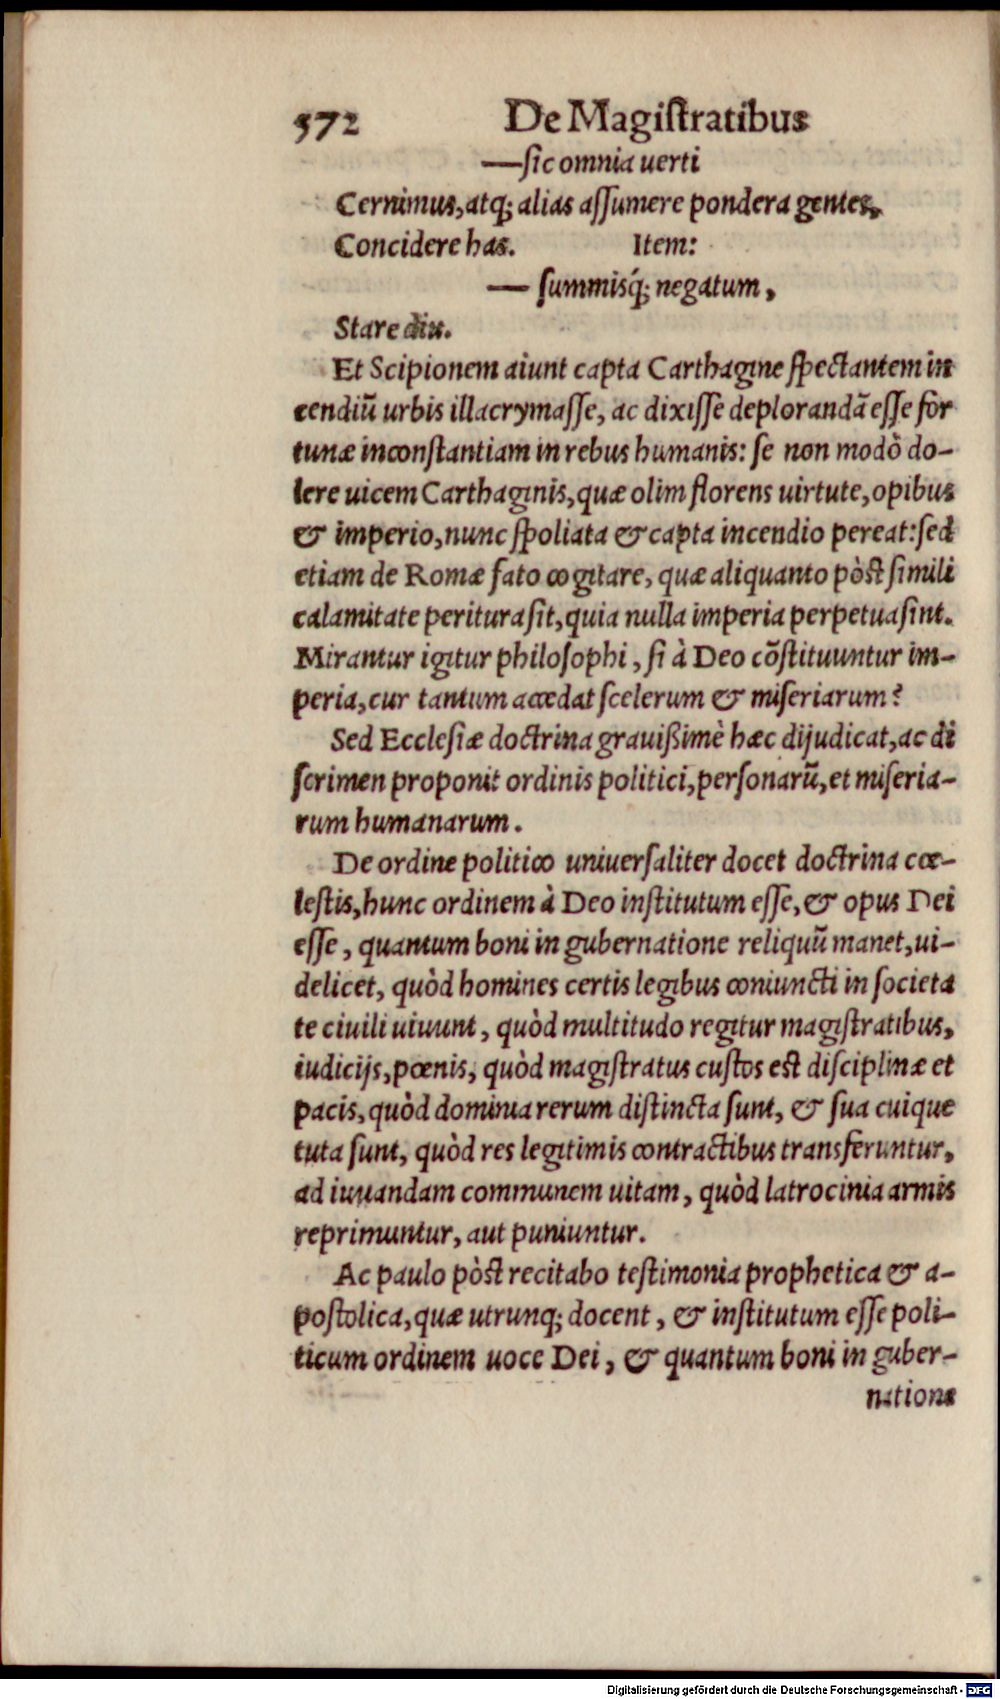 572 De Magiſtratibus
—ſic omnia uerti
Cernimus, atq; alias aſſumere pondera gentes,
Concidere has. Item:
— ſummisq́; negatum,
Stare diu.
Et Scipionem aiunt capta Carthagine ſpectantem in
cendiũ urbis illacrymaſſe, ac dixiſſe deplorandã eſſe for
tunæ inconſtantiam in rebus humanis: ſe non modò do-
lere uicem Carthaginis, quæ olim florens uirtute, opibus
& imperio, nunc ſpoliata & capta incendio pereat: ſed
etiam de Romæ fato cogitare, quæ aliquanto pòſt ſimili
calamitate peritura ſit, quia nulla imperia perpetua ſint.
Mirantur igitur philoſophi, ſi à Deo cõſtituuntur im-
peria, cur tantum accedat ſcelerum & miſeriarum?
Sed Eccleſiæ doctrina grauißimè hæc dijudicat, ac di
ſcrimen proponit ordinis politici, perſonarũ, et miſeria-
rum humanarum.
De ordine politico uniuerſaliter docet doctrina cœ-
leſtis, hunc ordinem à Deo inſtitutum eſſe, & opus Dei
eſſe, quantum boni in gubernatione reliquũ manet, ui-
delicet, quòd homines certis legibus coniuncti in ſocieta
te ciuili uiuunt, quòd multitudo regitur magiſtratibus,
iudicijs, pœnis, quòd magiſtratus cuſtos eſt diſciplinæ et
pacis, quòd dominia rerum diſtincta ſunt, & ſua cuique
tuta ſunt, quòd res legitimis contractibus transferuntur,
ad iuuandam communem uitam, quòd latrocinia armis
reprimuntur, aut puniuntur.
Ac paulo pòſt recitabo teſtimonia prophetica & a-
poſtolica, quæ utrunq; docent, & inſtitutum eſſe poli-
ticum ordinem uoce Dei, & quantum boni in guber-
natione
Digitalisierung gefördert durch die Deutsche Forschungsgemeinschaft - DFG